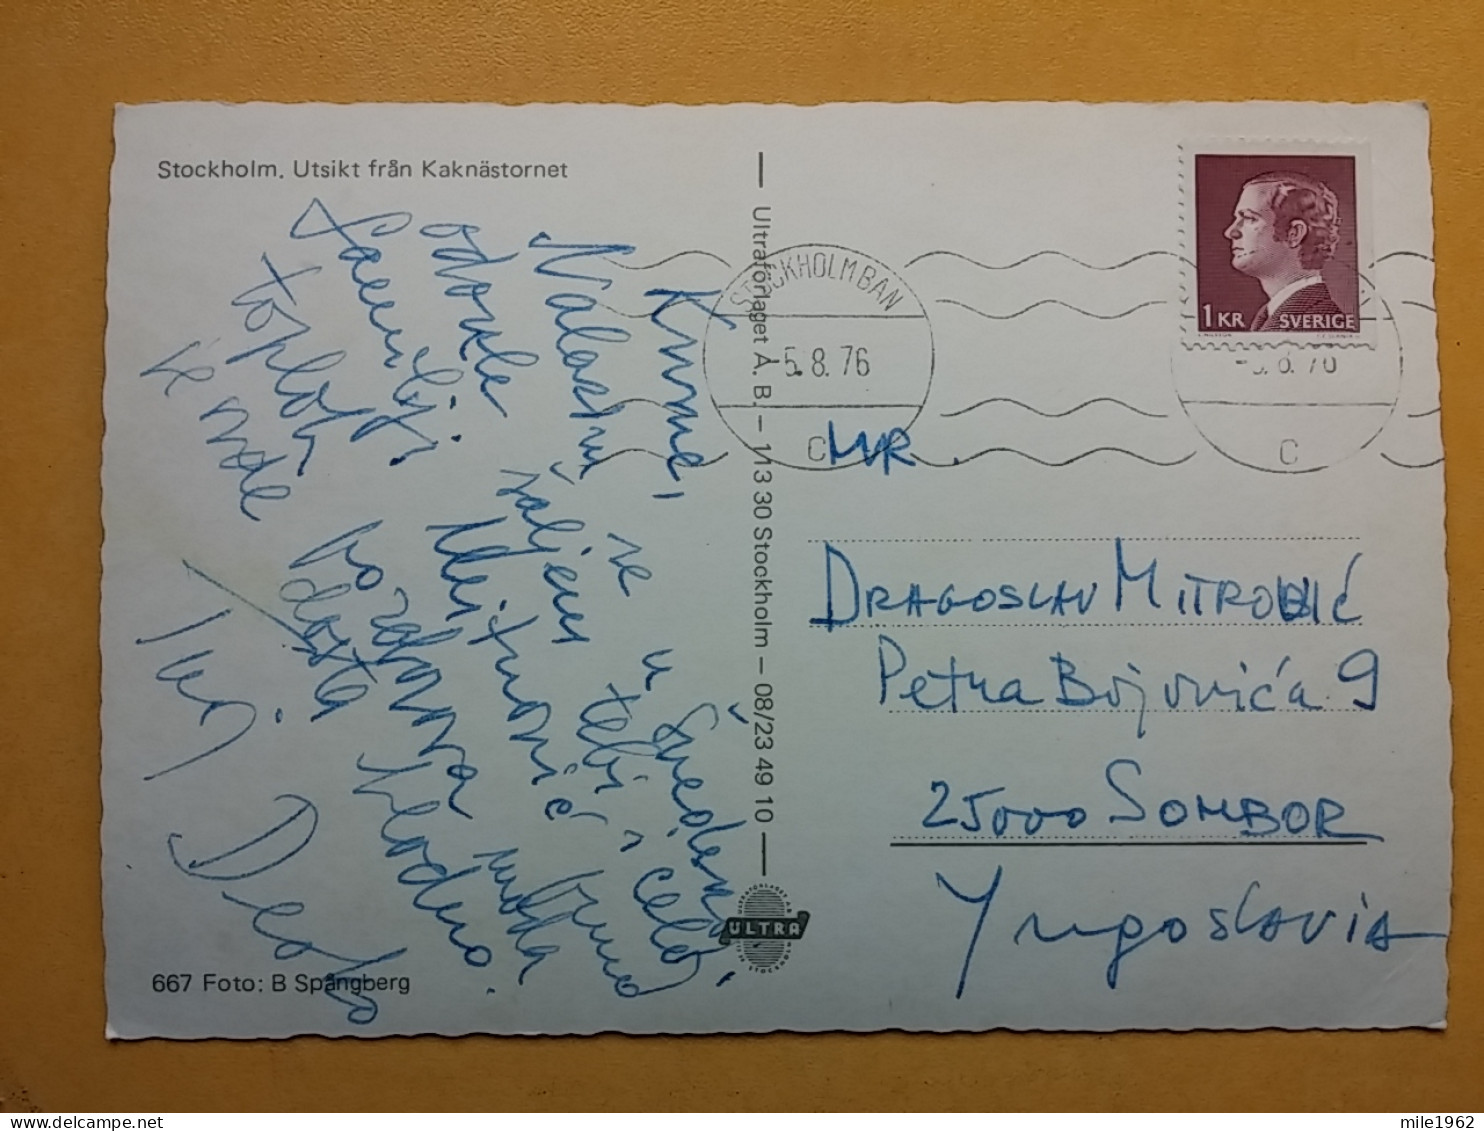 Stockholm. Utsikt från Kaknästornet
Kume,
Nalazim se u Švedskoj,
odakle šaljem tebi i celoj
familiji Mitrović
toplo pozdrava
je ovde dosta hladno.
Tvoj Deda
667 Foto: B Spångberg
Ultraförlaget A. B. – 113 30 Stockholm – 08/23 49 10
ULTRA
STOCKHOLM BAN
-5.8.76
C
1 KR SVERIGE
C
MR.
DRAGOSLAV MITROVIĆ
Petra Bojovića 9
25000 SOMBOR
Yugoslavia
mile1962